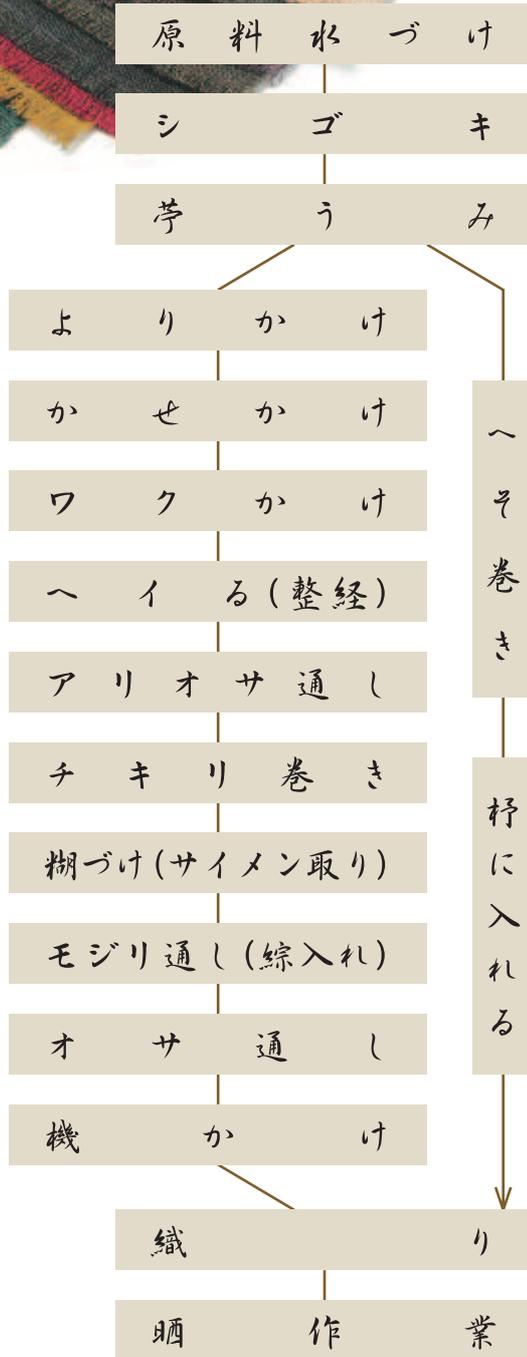 原料水づけ
シゴキ
苧うみ
よりかけ
かせかけ
ワクかけ
ヘイる(整経)
アリオサ通し
チキリ巻き
糊づけ(サイメン取り)
モジリ通し(綜入れ)
オサ通し
機かけ
へそ巻き
杼に入れる
織り
晒作業